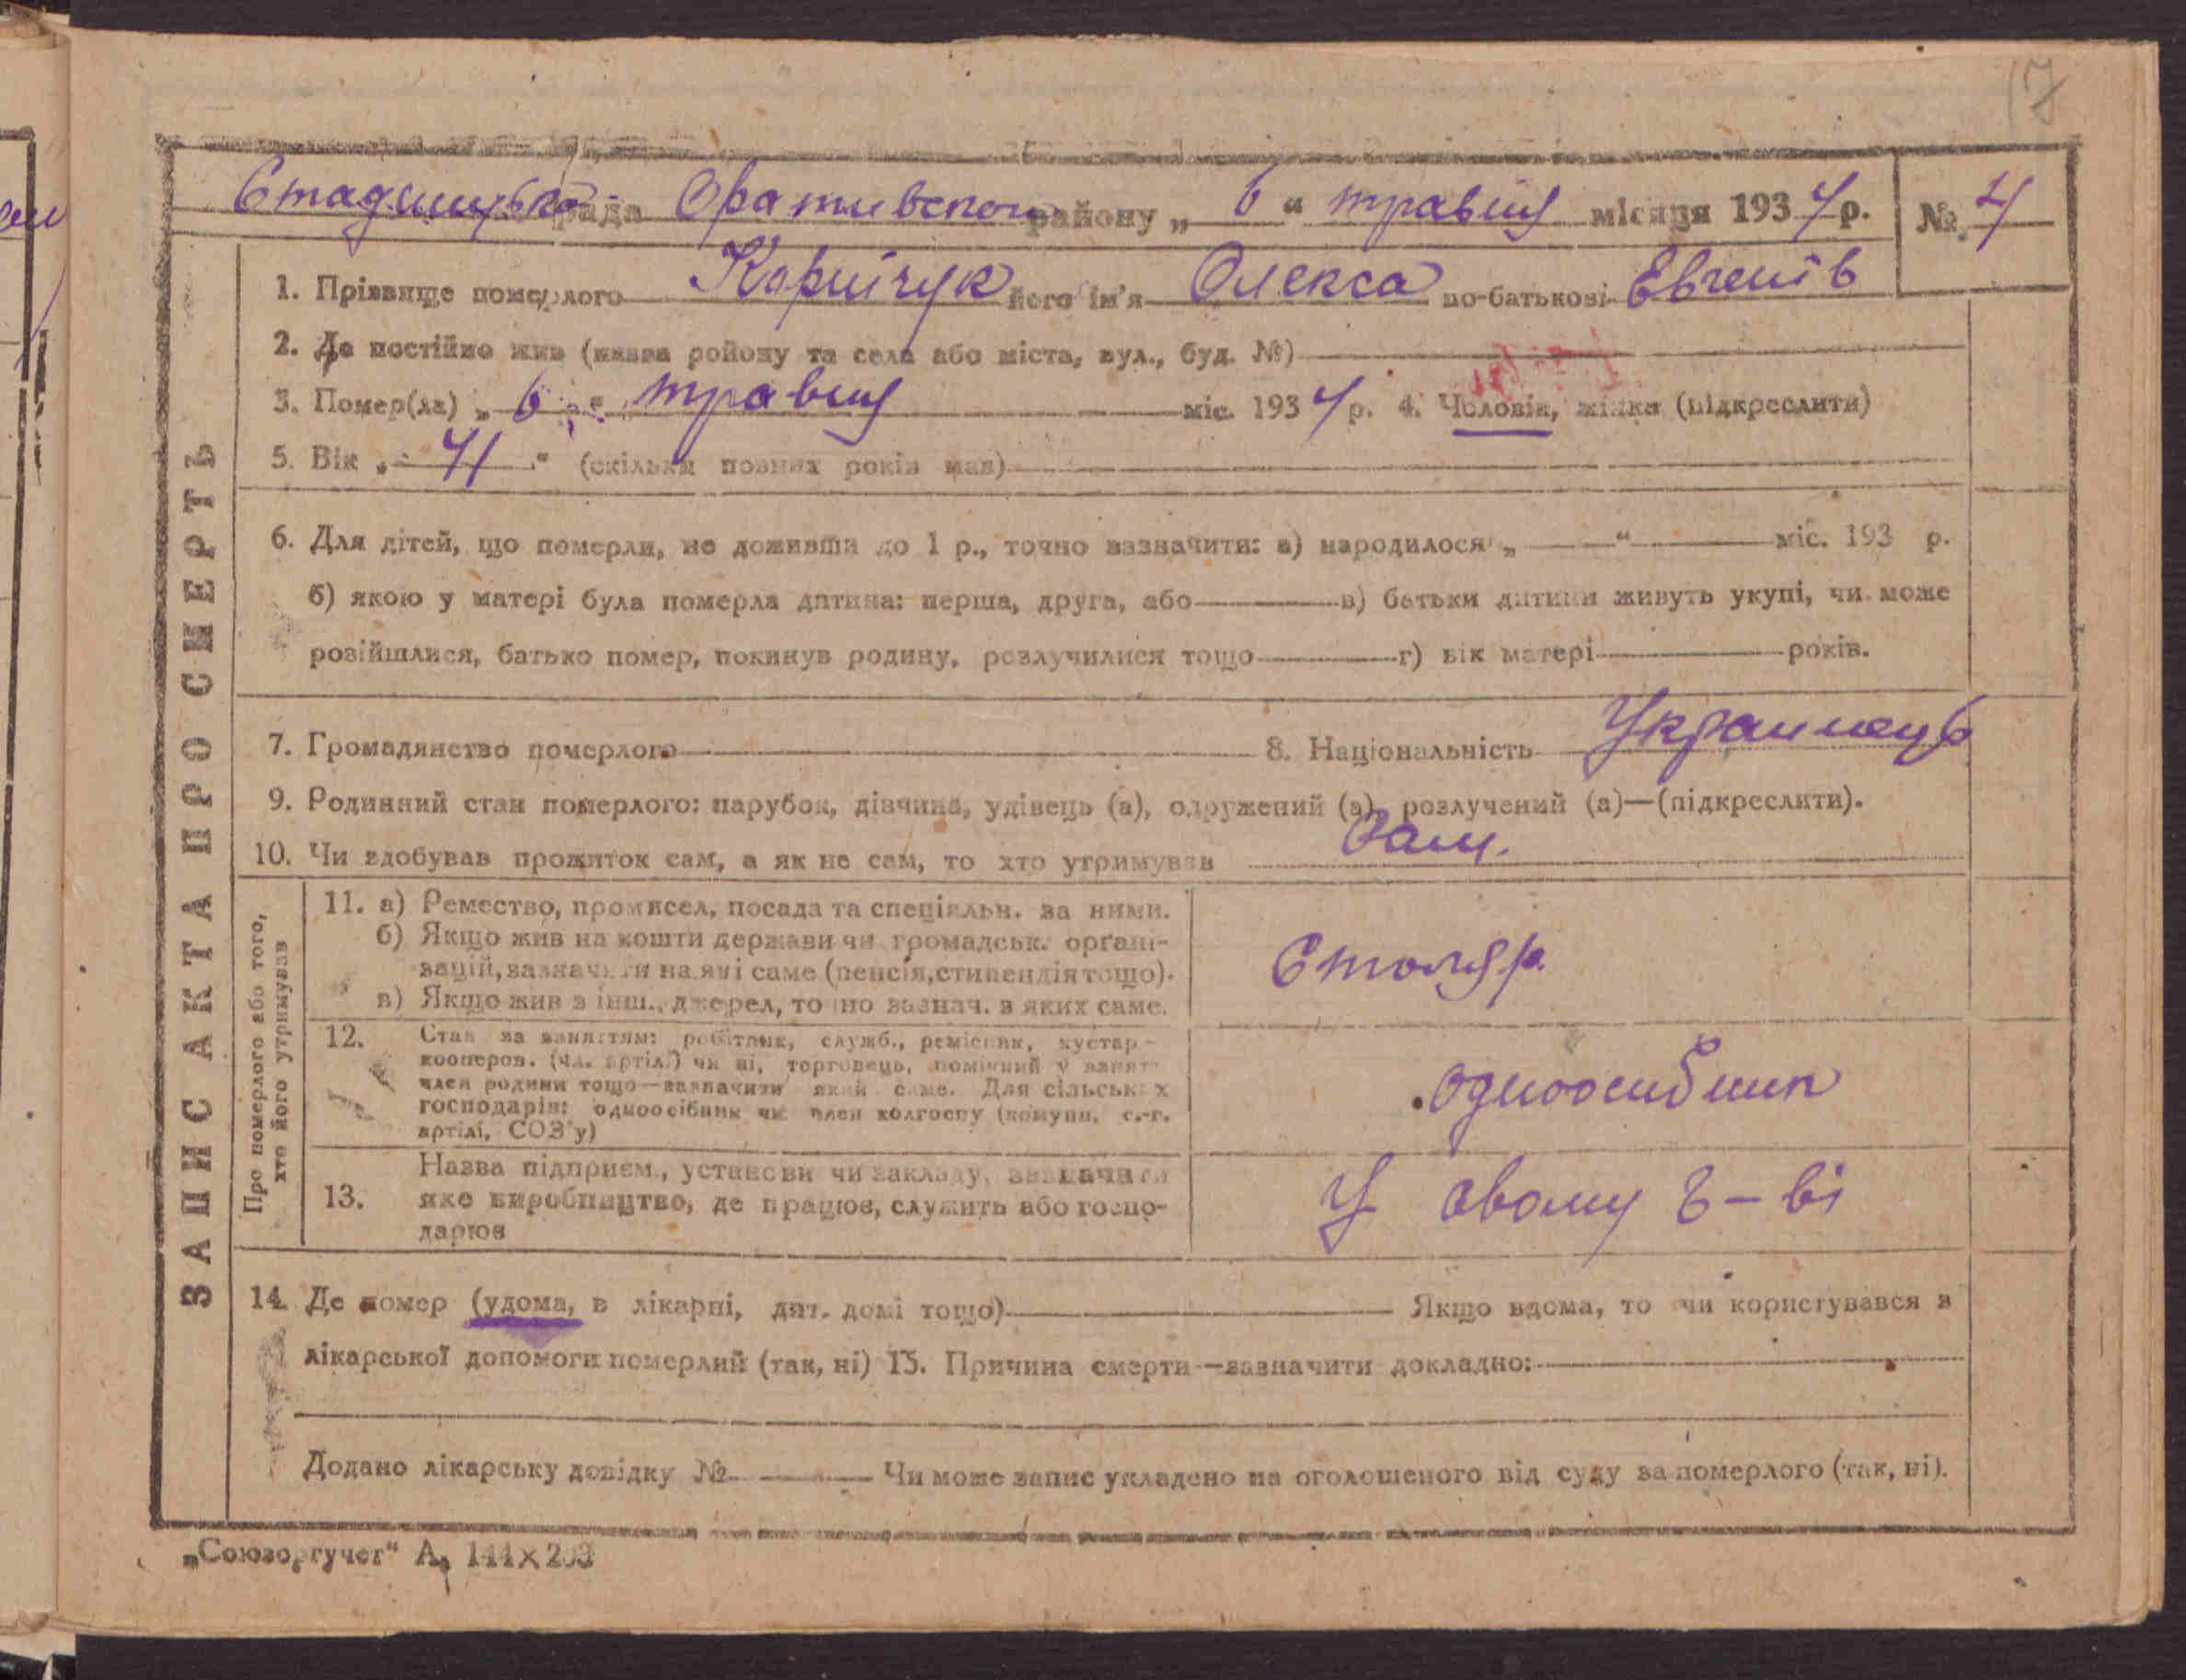 17
Стадницька рада Оратівського району „ 6 “ травня місяця 1934 р. № 4
1. Прізвище померлого Корнійчук його ім'я Олекса по-батькові Евгенів
2. Де постійно жив (назва ройону та села або міста, вул., буд. №)
3. Помер(ла) „ 6 “ травня міс. 1934 р. 4. Чоловік, жінка (підкреслити)
5. Вік „ 41 “ (скільки повних років мав)
6. Для дітей, що померли, не доживши до 1 р., точно зазначити: а) народилося „ “ міс. 193 р.
б) якою у матері була померла дитина: перша, друга, або в) батьки дитини живуть укупі, чи може
розійшлися, батько помер, покинув родину, розлучилися тощо г) вік матері років.
7. Громадянство померлого 8. Національність Украинець
9. Родинний стан померлого: парубок, дівчина, удівець (а), одружений (а), розлучений (а)—(підкреслити).
10. Чи здобував прожиток сам, а як не сам, то хто утримував Сам.
ЗАПИС АКТА ПРО СМЕРТЬ
Про померлого або того,
хто його утримував
11. а) Ремество, промисел, посада та спеціяльн. за ними.
б) Якщо жив на кошти держави чи громадськ. органі-
зацій, зазначити на які саме (пенсія, стипендія тощо).
в) Якщо жив з інш., джерел, точно зазнач. з яких саме.
Столяр.
12. Стан за заняттям: робітник, служб., ремісник, кустар-
кооперов. (чл. артілі) чи ні, торговець, помічний у занят.
член родини тощо—зазначити який саме. Для сільських
господарів: одноосібник чи член колгоспу (комуни, с.-г.
артілі, СОЗ'у)
одноосибник
13. Назва підприєм., установи чи закладу, зазначити
яке виробництво, де працює, служить або госпо-
дарює
У свому г-ві
14. Де помер (удома, в лікарні, дит. домі тощо) Якщо вдома, то чи користувався з
лікарської допомоги померлий (так, ні) 15. Причина смерти—зазначити докладно:
Додано лікарську довідку № Чи може запис укладено на оголошеного від суду за померлого (так, ні).
„Союзоргучет“ А